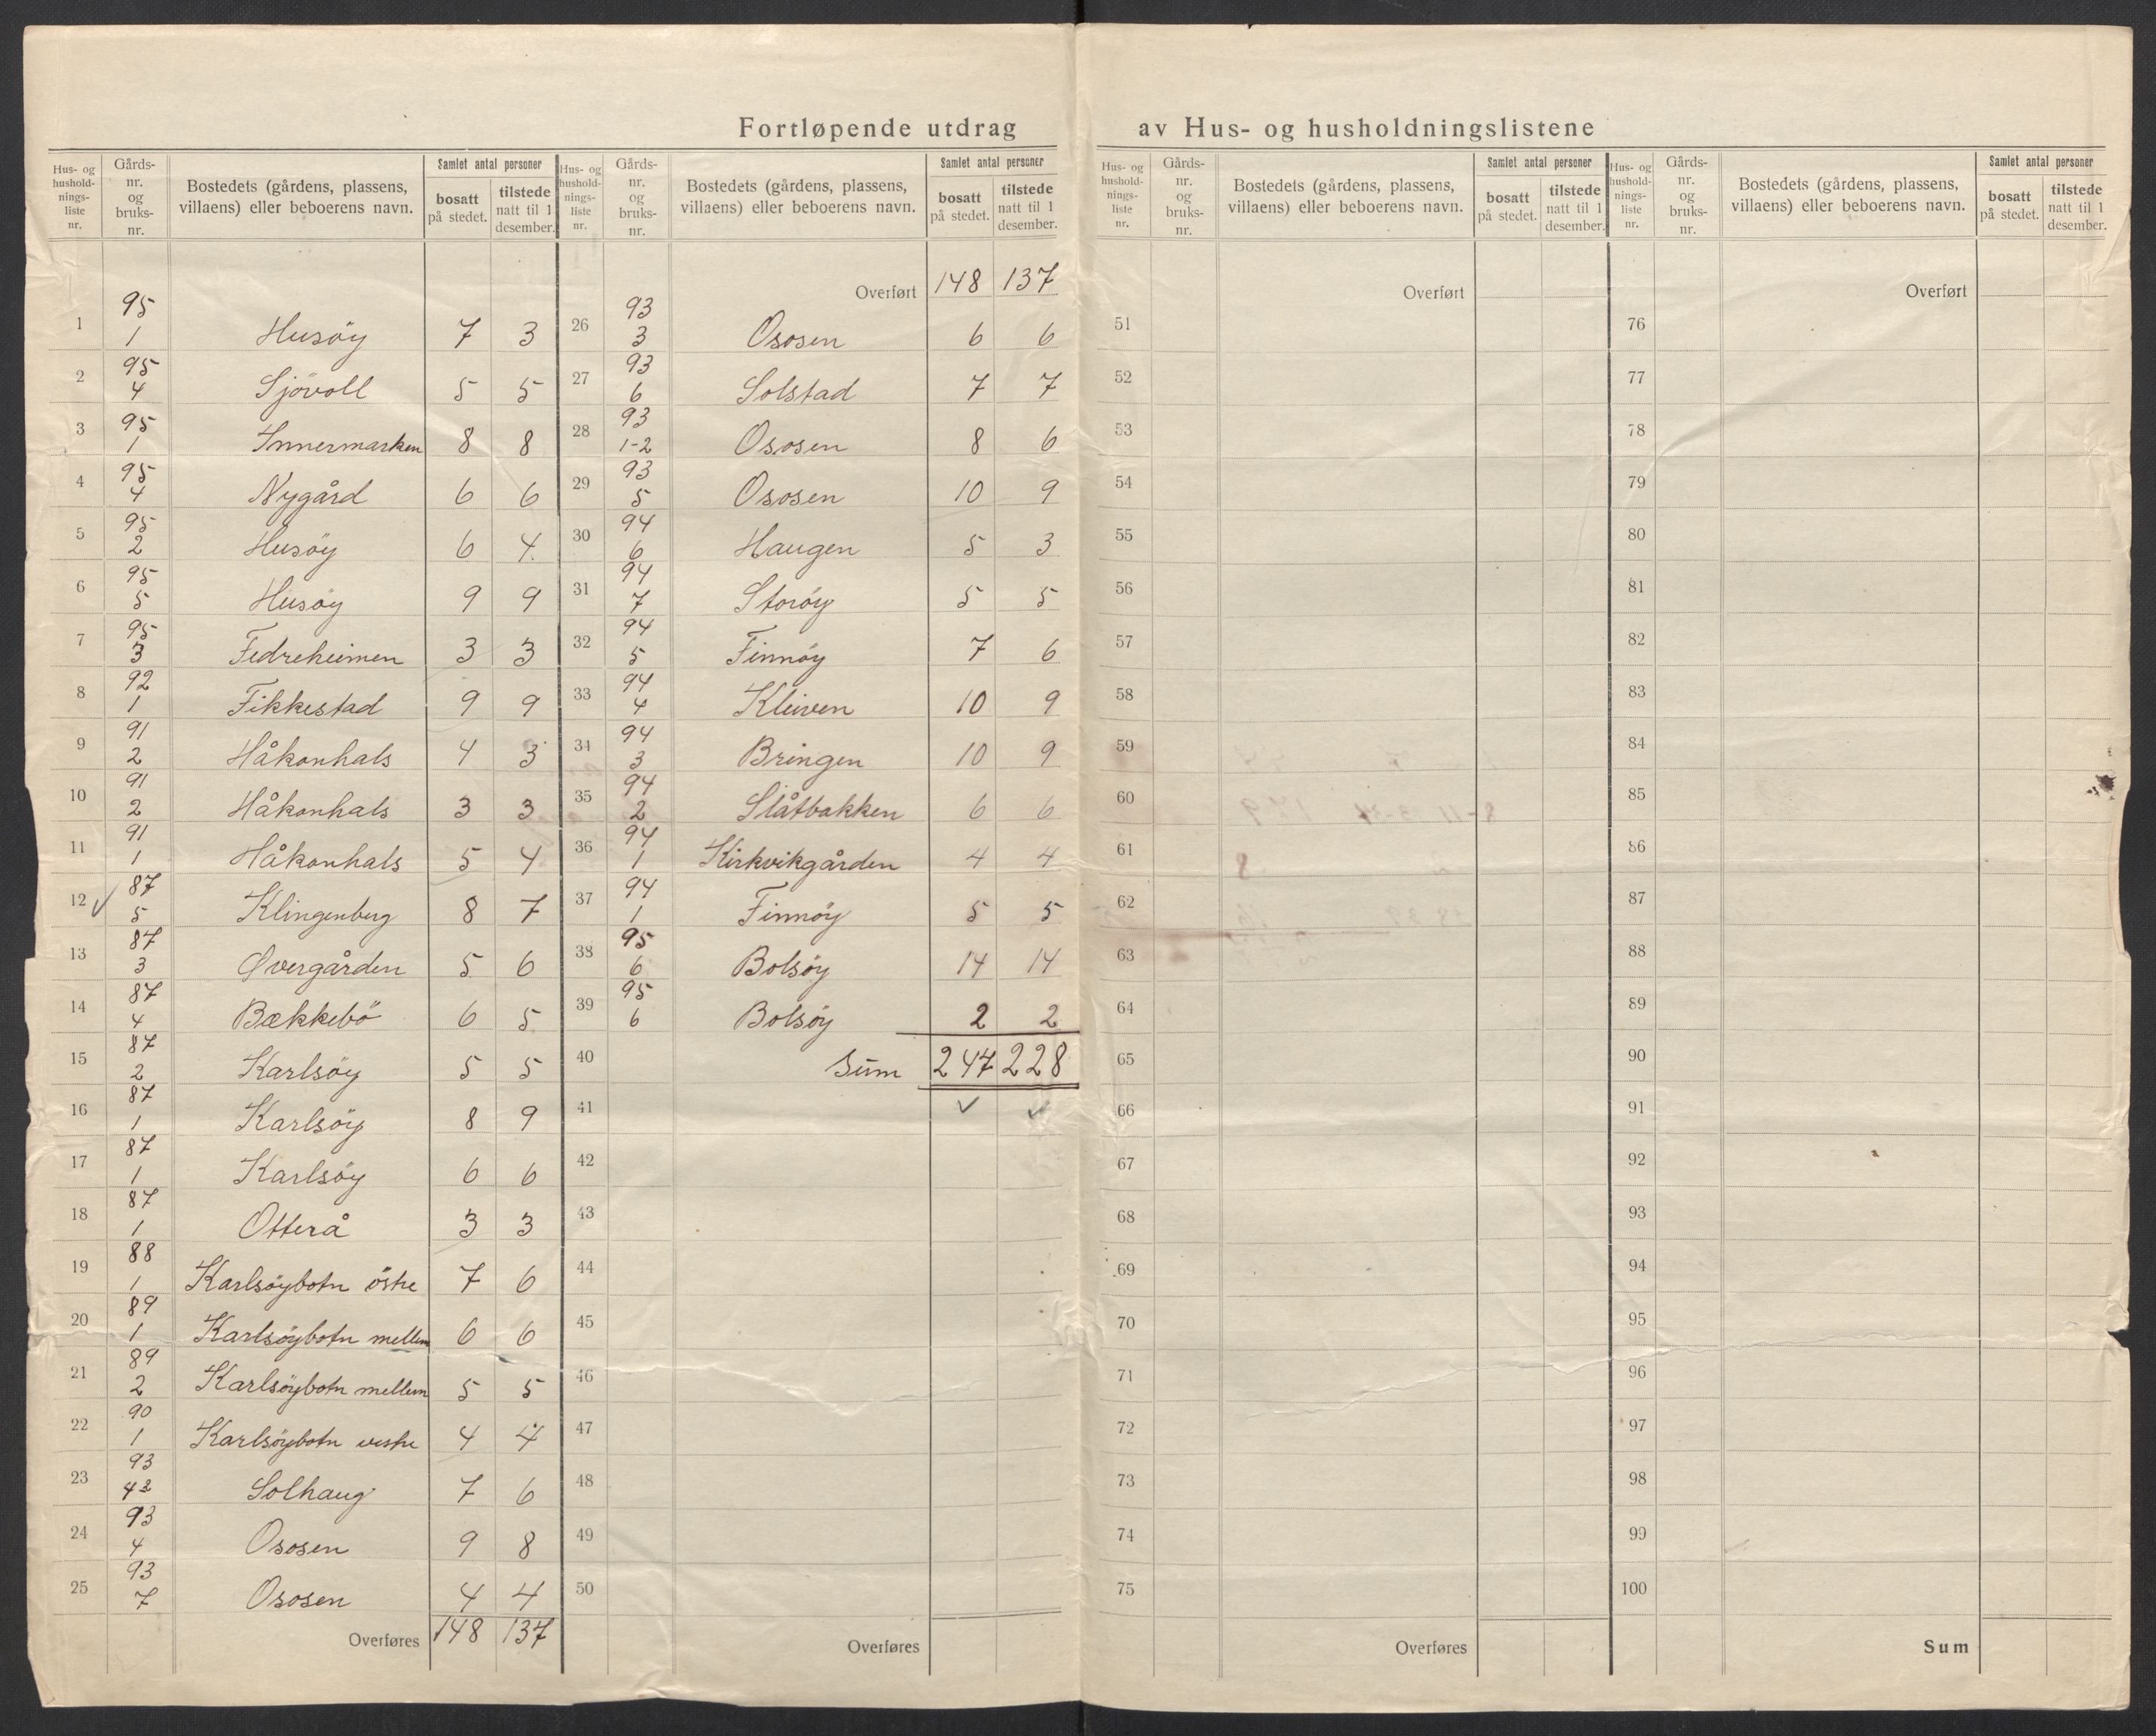 Fortløpende utdrag av Hus- og husholdningslistene
Hus- og hushold- nings- liste nr. Gårds- nr. og bruks- nr. Bostedets (gårdens, plassens, villaens) eller beboerens navn. Samlet antal personer bosatt på stedet. tilstede natt til 1 desember.
1 95 1 Husöy 7 3
2 95 4 Sjövoll 5 5
3 95 1 Innermarken 8 8
4 95 4 Nygård 6 6
5 95 2 Husöy 6 4
6 95 5 Husöy 9 9
7 95 3 Fedreheimen 3 3
8 92 1 Fikkestad 9 9
9 91 2 Håkonhals 4 3
10 91 2 Håkonhals 3 3
11 91 1 Håkonhals 5 4
12 87 5 Klingenberg 8 7
13 87 3 Øvergården 5 6
14 87 4 Bækkebö 6 5
15 87 2 Karlsöy 5 5
16 87 1 Karlsöy 8 9
17 87 1 Karlsöy 6 6
18 87 1 Otterå 3 3
19 88 1 Karlsöybotn östre 7 6
20 89 1 Karlsöybotn mellem 6 6
21 89 2 Karlsöybotn mellem 5 5
22 90 1 Karlsöybotn vestre 4 4
23 93 Solhaug 7 6
24 93 4 Ososen 9 8
25 93 7 Ososen 4 4
Overføres 148 137
Hus- og hushold- nings- liste nr. Gårds- nr. og bruks- nr. Bostedets (gårdens, plassens, villaens) eller beboerens navn. Samlet antal personer bosatt på stedet. tilstede natt til 1 desember.
Overført 148 137
26 93 3 Ososen 6 6
27 93 6 Solstad 7 7
28 93 1-2 Ososen 8 6
29 93 5 Ososen 10 9
30 94 6 Haugen 5 3
31 94 7 Storöy 5 5
32 94 5 Finnöy 7 6
33 94 4 Kleiven 10 9
34 94 3 Bringen 10 9
35 94 2 Slåtbakken 6 6
36 94 1 Kirkvikgården 4 4
37 94 1 Finnöy 5 5
38 95 6 Bolsöy 14 14
39 95 6 Bolsöy 2 2
40 Sum 247 228
41
42
43
44
45
46
47
48
49
50
Overføres
Hus- og hushold- nings- liste nr. Gårds- nr. og bruks- nr. Bostedets (gårdens, plassens, villaens) eller beboerens navn. Samlet antal personer bosatt på stedet. tilstede natt til 1 desember.
Overført
51
52
53
54
55
56
57
58
59
60
61
62
63
64
65
66
67
68
69
70
71
72
73
74
75
Overføres
Hus- og hushold- nings- liste nr. Gårds- nr. og bruks- nr. Bostedets (gårdens, plassens, villaens) eller beboerens navn. Samlet antal personer bosatt på stedet. tilstede natt til 1 desember.
Overført
76
77
78
79
80
81
82
83
84
85
86
87
88
89
90
91
92
93
94
95
96
97
98
99
100
Sum